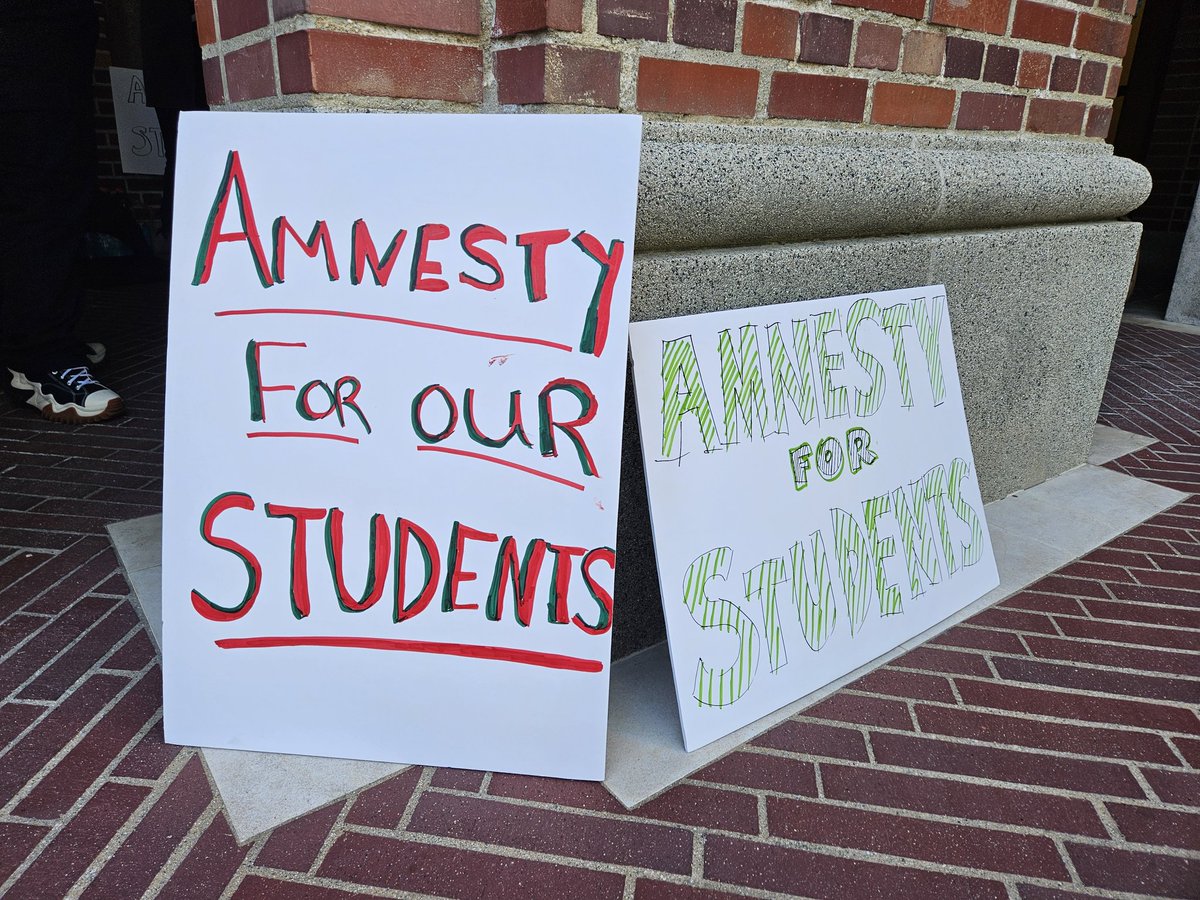 AMNESTY
FOR OUR
STUDENTS
AMNESTY
FOR
STUDENTS
A
ST